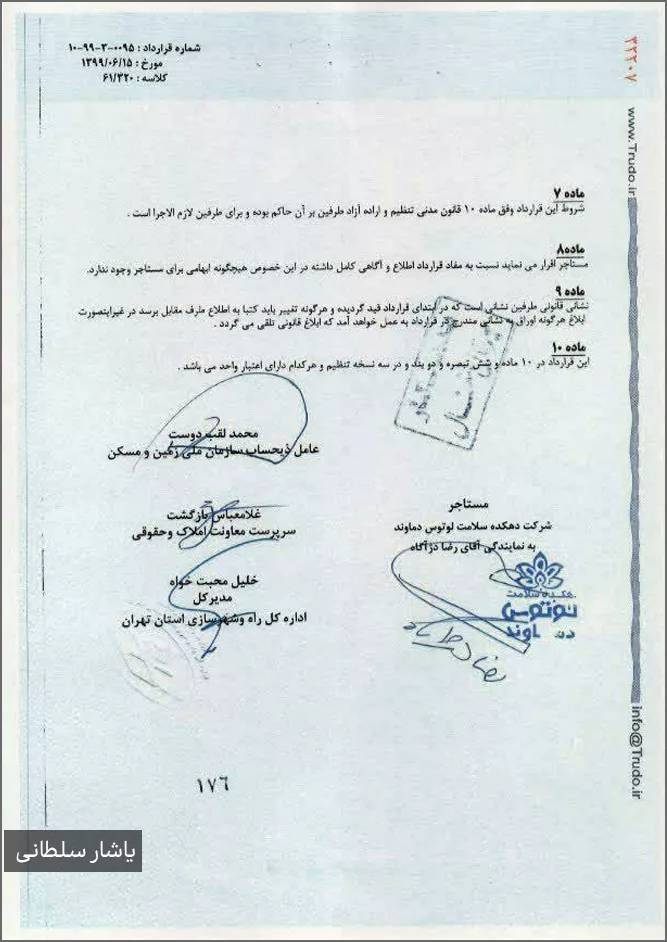 شماره قرارداد : ۱۰-۹۹-۳-۰۰۹۵
مورخ : ۱۳۹۹/۰۶/۱۵
کلاسه : ۶۱/۳۲۰
www.Trudo.ir
ماده ۷
شروط این قرارداد وفق ماده ۱۰ قانون مدنی تنظیم و اراده آزاد طرفین بر آن حاکم بوده و برای طرفین لازم الاجرا است .
ماده۸
مستاجر اقرار می نماید نسبت به مفاد قرارداد اطلاع و آگاهی کامل داشته در این خصوص هیچگونه ابهامی برای مستاجر وجود ندارد.
ماده ۹
نشانی قانونی طرفین نشانی است که در ابتدای قرارداد قید گردیده و هرگونه تغییر باید کتبا به اطلاع طرف مقابل برسد در غیراینصورت
ابلاغ هرگونه اوراق به نشانی مندرج در قرارداد به عمل خواهد آمد که ابلاغ قانونی تلقی می گردد .
ماده ۱۰
این قرارداد در ۱۰ ماده و شش تبصره و دو بند و در سه نسخه تنظیم و هرکدام دارای اعتبار واحد می باشد .
محمد لقب دوست
عامل ذیحساب سازمان ملی زمین و مسکن
مستاجر
شرکت دهکده سلامت لوتوس دماوند
به نمایندگی آقای رضا دژآگاه
غلامعباس بازگشت
سرپرست معاونت املاک وحقوقی
خلیل محبت خواه
مدیرکل
اداره کل راه وشهرسازی استان تهران
دهکده سلامت
لوتوس
دماوند
info@Trudo.ir
۱۷۶
یاشار سلطانی